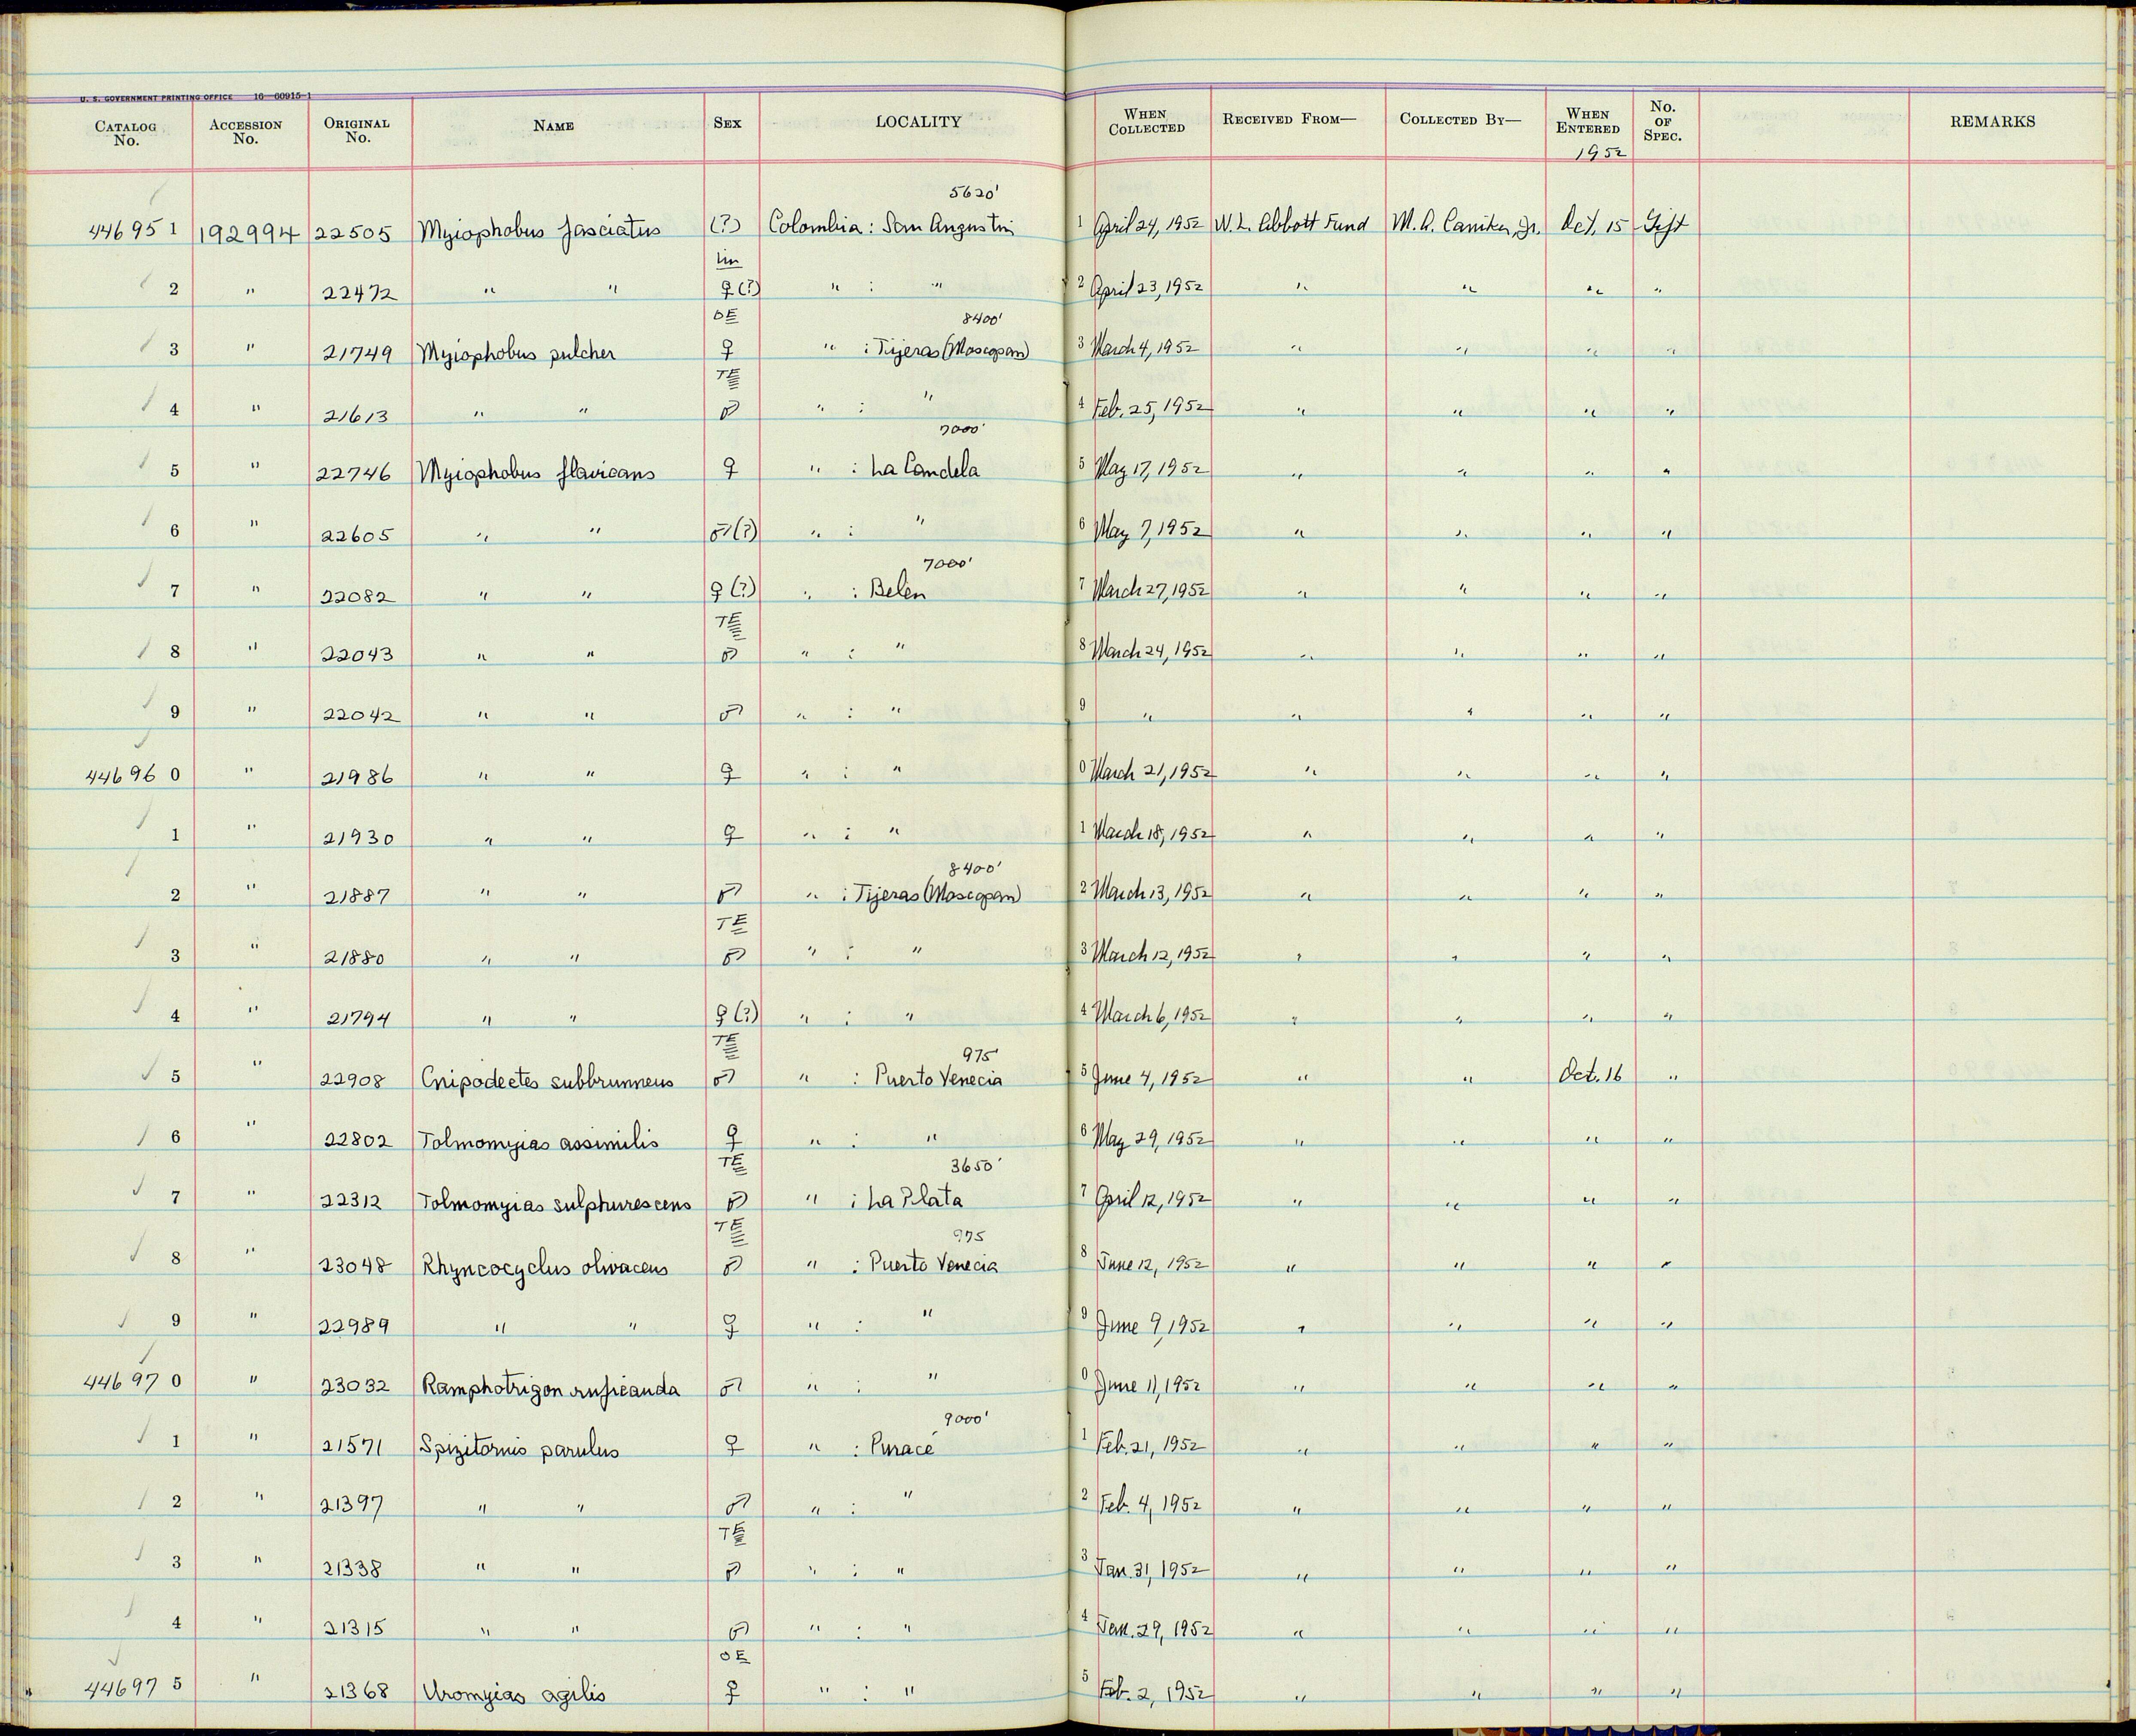 U. S. GOVERNMENT PRINTING OFFICE 16—60915-1
CATALOG No. ACCESSION No. ORIGINAL No. NAME SEX LOCALITY WHEN COLLECTED RECEIVED FROM— COLLECTED BY— WHEN ENTERED No. OF SPEC. REMARKS
1952
5620'
446951 192994 22505 Myiophobus fasciatus (?) Colombia: San Angustin 1 April 24, 1952 W. L. Abbott Fund M. A. Carriker, Jr. Oct. 15 Gift
Im
2 " 22472 " " ♀(?) " : " 2 April 23, 1952 " " " "
OE 8400'
3 " 21749 Myiophobus pulcher ♀ " : Tijeras (Moscopan) 3 March 4, 1952 " " " "
TE
4 " 21613 " " ♂ " : " 4 Feb. 25, 1952 " " " "
7000'
5 " 22746 Myiophobus flavicans ♀ " : La Candela 5 May 17, 1952 " " " "
6 " 22605 " " ♂(?) " : " 6 May 7, 1952 " " " "
7000'
7 " 22082 " " ♀(?) " : Belen 7 March 27, 1952 " " " "
TE
8 " 22043 " " ♂ " : " 8 March 24, 1952 " " " "
9 " 22042 " " ♂ " : " 9 " " " " "
446960 " 21986 " " ♀ " : " 0 March 21, 1952 " " " "
1 " 21930 " " ♀ " : " 1 March 18, 1952 " " " "
8400'
2 " 21887 " " ♂ " : Tijeras (Moscopan) 2 March 13, 1952 " " " "
TE
3 " 21880 " " ♂ " : " 3 March 12, 1952 " " " "
4 " 21794 " " ♀(?) " : " 4 March 6, 1952 " " " "
TE 975'
5 " 22908 Cnipodectes subbrunneus ♂ " : Puerto Venecia 5 June 4, 1952 " " Oct. 16 "
6 " 22802 Tolmomyias assimilis ♀ " : " 6 May 29, 1952 " " " "
TE 3650'
7 " 22312 Tolmomyias sulphurescens ♂ " : La Plata 7 April 12, 1952 " " " "
TE 975
8 " 23048 Rhyncocyclus olivaceus ♂ " : Puerto Venecia 8 June 12, 1952 " " " "
9 " 22989 " " ♀ " : " 9 June 9, 1952 " " " "
446970 " 23032 Ramphotrigon ruficauda ♂ " : " 0 June 11, 1952 " " " "
9000'
1 " 21571 Spizitornis parulus ♀ " : Puracé 1 Feb. 21, 1952 " " " "
2 " 21397 " " ♂ " : " 2 Feb. 4, 1952 " " " "
TE
3 " 21338 " " ♂ " : " 3 Jan. 31, 1952 " " " "
4 " 21315 " " ♂ " : " 4 Jan. 29, 1952 " " " "
OE
446975 " 21368 Uromyias agilis ♀ " : " 5 Feb. 2, 1952 " " " "